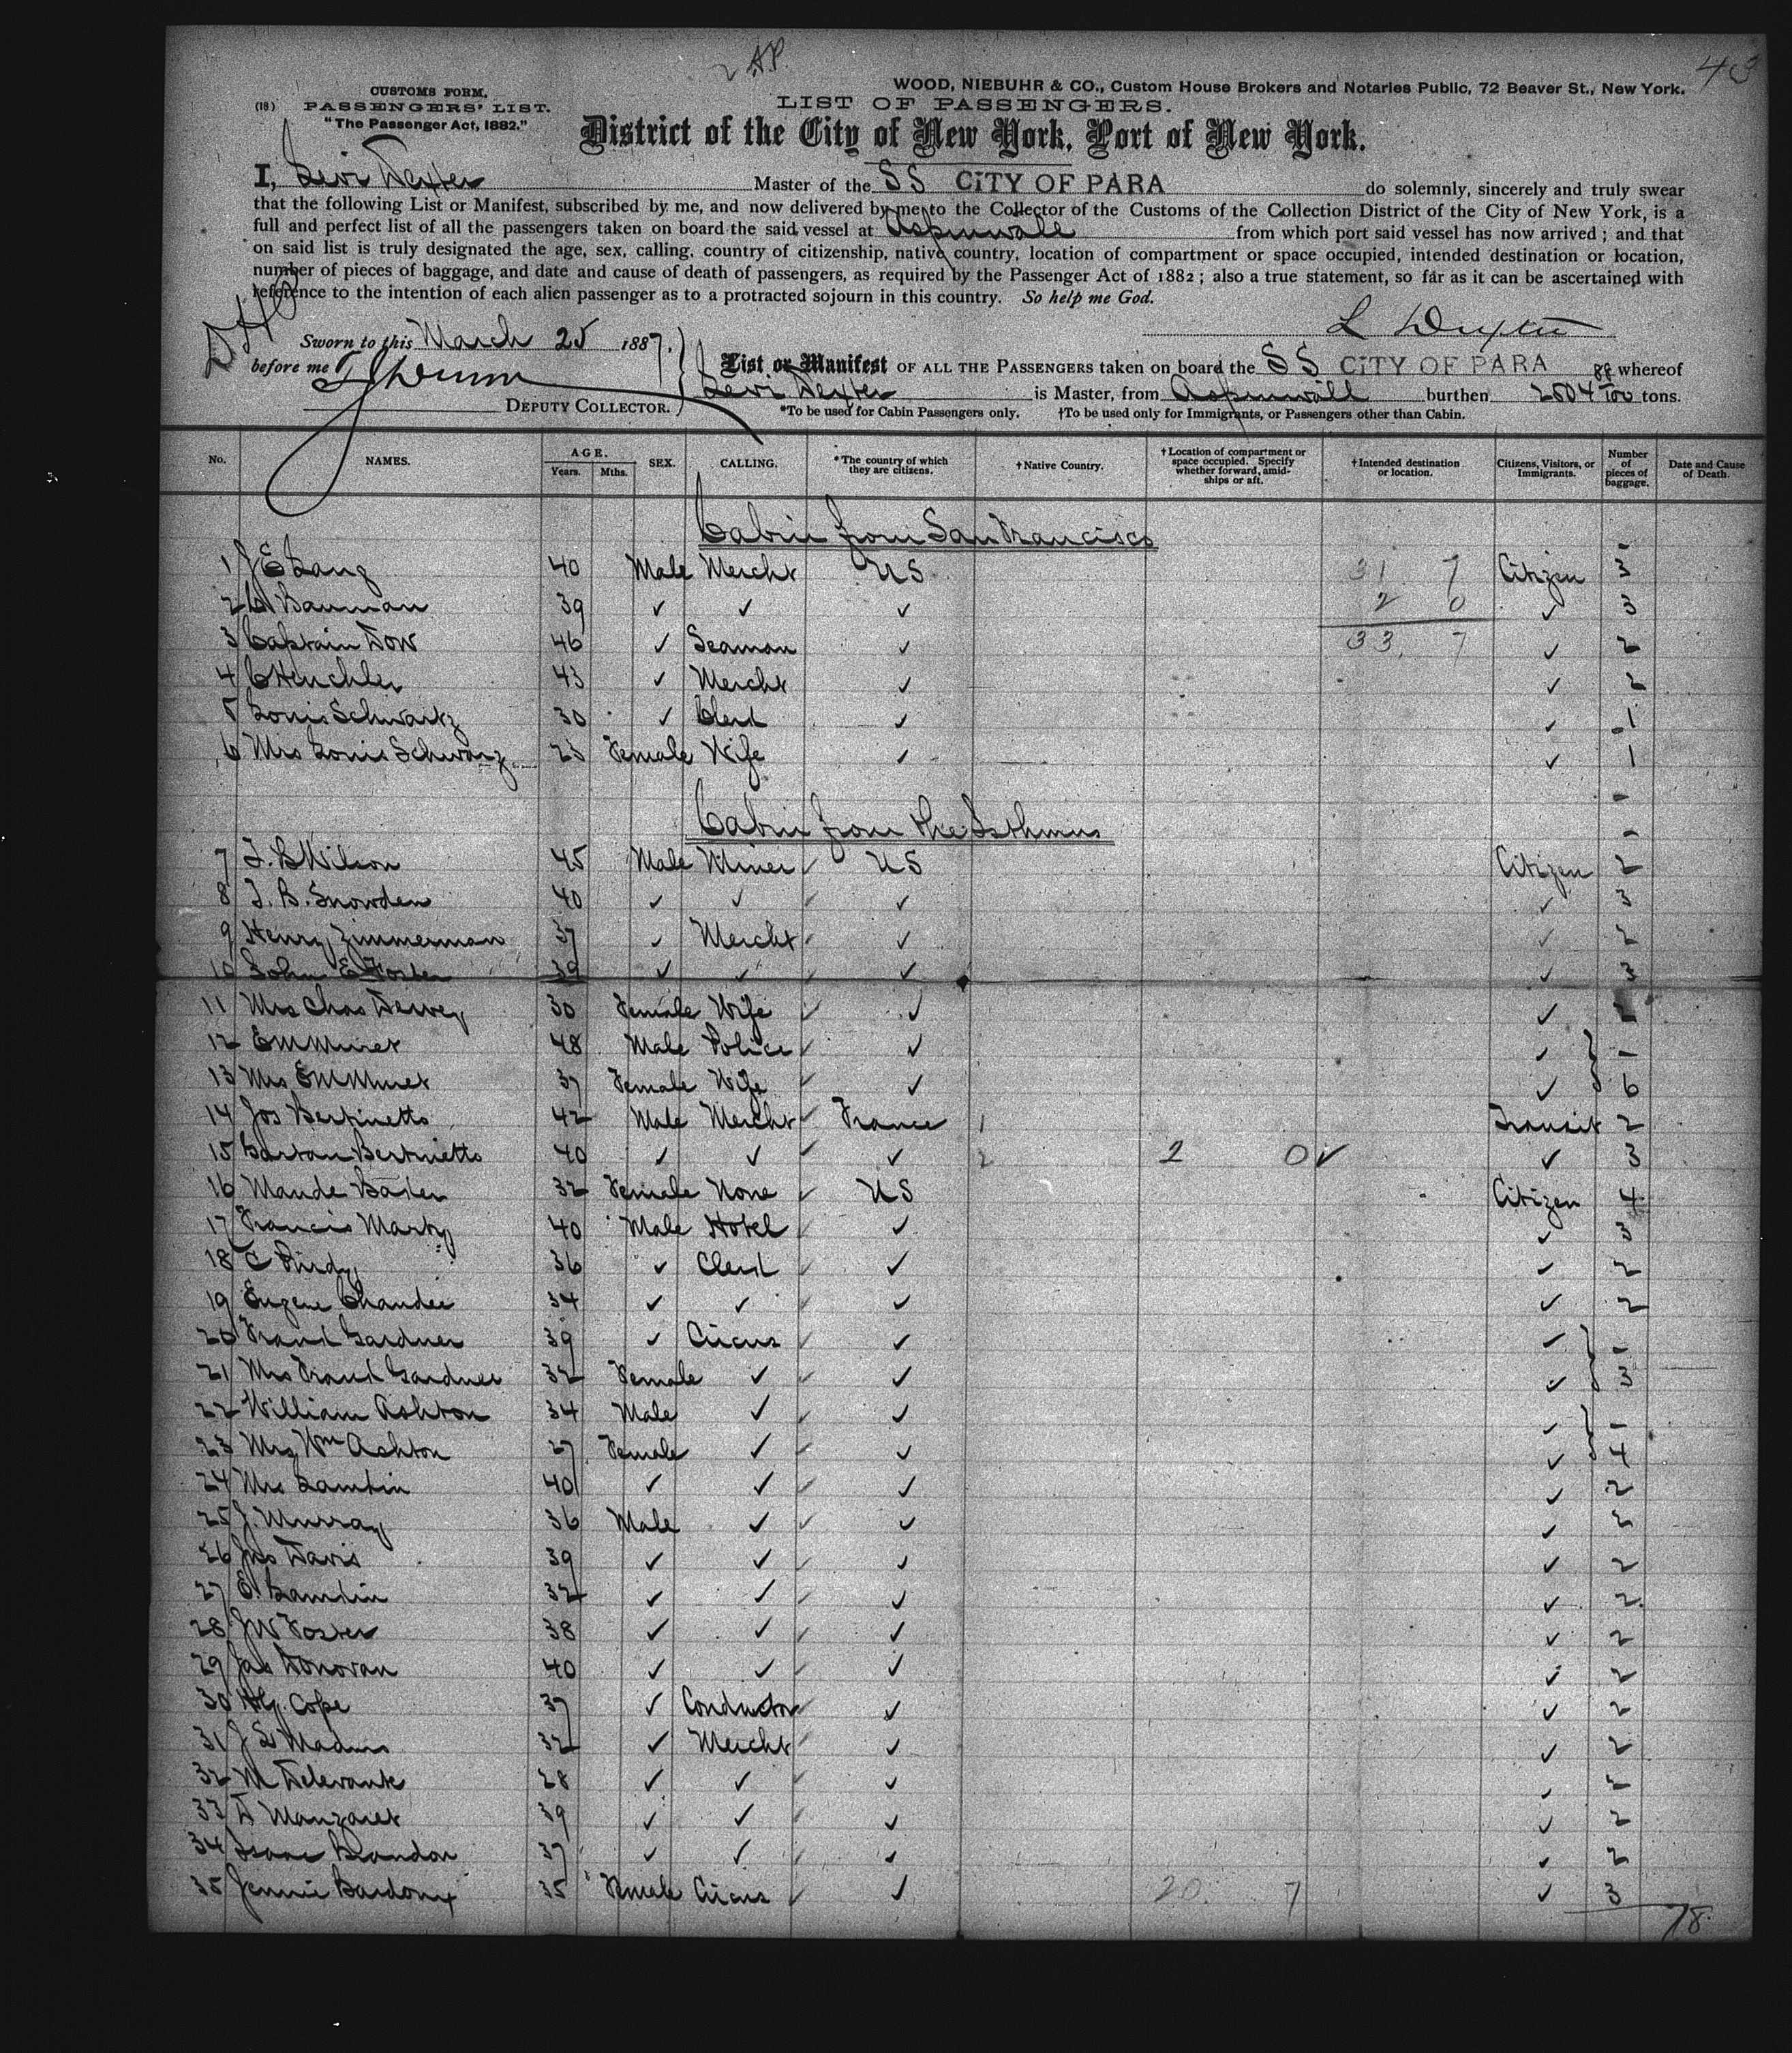 2 AP.
43
CUSTOMS FORM.
(18) PASSENGERS' LIST.
"The Passenger Act, 1882."
WOOD, NIEBUHR & CO., Custom House Brokers and Notaries Public, 72 Beaver St., New York.
LIST OF PASSENGERS.
District of the City of New York, Port of New York.
I, Levi Dexter Master of the SS CITY OF PARA do solemnly, sincerely and truly swear
that the following List or Manifest, subscribed by me, and now delivered by me to the Collector of the Customs of the Collection District of the City of New York, is a
full and perfect list of all the passengers taken on board the said vessel at Aspinwall from which port said vessel has now arrived; and that
on said list is truly designated the age, sex, calling, country of citizenship, native country, location of compartment or space occupied, intended destination or location,
number of pieces of baggage, and date and cause of death of passengers, as required by the Passenger Act of 1882; also a true statement, so far as it can be ascertained with
reference to the intention of each alien passenger as to a protracted sojourn in this country. So help me God.
L Dexter
Sworn to this March 25 1887.
before me
DEPUTY COLLECTOR.
List or Manifest OF ALL THE PASSENGERS taken on board the SS CITY OF PARA whereof
Levi Dexter is Master, from Aspinwall burthen 2504 88/100 tons.
*To be used for Cabin Passengers only. †To be used only for Immigrants, or Passengers other than Cabin.
No. NAMES. AGE. Years. Mths. SEX. CALLING. *The country of which they are citizens. †Native Country. †Location of compartment or space occupied. Specify whether forward, amidships or aft. †Intended destination or location. Citizens, Visitors, or Immigrants. Number of pieces of baggage. Date and Cause of Death.
Cabin from San Francisco
1 J E Lang 40 Male Mercht US 31 7 Citizen 3
2 Bauman 39 ✓ ✓ ✓ 2 0 ✓ 3
3 Captain Dow 46 ✓ Seaman ✓ 33. 7 ✓ 2
4 C Henchler 43 ✓ Mercht ✓ ✓ 2
5 Louis Schwartz 30 ✓ Clerk ✓ ✓ 1
6 Mrs Louis Schwarz 25 Female Wife ✓ ✓ 1
Cabin from the Isthmus
7 T. B Wilson 45 Male Miner US Citizen 2
8 T. B. Snowden 40 ✓ ✓ ✓ ✓ 3
9 Henry Zimmerman 37 ✓ Mercht ✓ ✓ 2
10 John E Foster 39 ✓ ✓ ✓ ✓ 3
11 Mrs Chas Dewey 30 Female Wife ✓ ✓
12 E M Minet 48 Male Police ✓ ✓ -
13 Mrs E M Minet 37 Female Wife ✓ ✓ 6
14 Jos Bertinetto 42 Male Mercht France 1 Transit 2
15 Bertinetto 40 ✓ ✓ ✓ 2 2 0 ✓ ✓ 3
16 Maude 32 Female None US Citizen 4
17 Francis Marty 40 Male Hotel ✓ ✓ 3
18 C Purdy 36 ✓ Clerk ✓ ✓ 2
19 Eugene Chandee 34 ✓ ✓ ✓ ✓ 2
20 Frank Gardner 39 ✓ Circus ✓ ✓ -
21 Mrs Frank Gardner 32 Female ✓ ✓ ✓ 3
22 William Ashton 34 Male ✓ ✓ ✓ -
23 Mrs Wm Ashton 27 Female ✓ ✓ ✓ 4
24 Mrs Lamkin 40 ✓ ✓ ✓ ✓ 2
25 J. Murray 36 Male ✓ ✓ ✓ 2
26 Jno Davis 39 ✓ ✓ ✓ ✓ 2
27 E. Lamkin 32 ✓ ✓ ✓ ✓ 2
28 J W Foster 38 ✓ ✓ ✓ ✓ 2
29 Jas Donovan 40 ✓ ✓ ✓ ✓ 2
30 Cope 37 ✓ Conductor ✓ ✓ 2
31 J S Madus 32 ✓ Mercht ✓ ✓ 2
32 M Delevante 28 ✓ ✓ ✓ ✓ 2
33 D Manzaret 39 ✓ ✓ ✓ ✓ 2
34 Isaac Brandon 37 ✓ ✓ ✓ ✓ 2
35 Jennie 35 Female Circus ✓ 20. 7 ✓ 3
78.